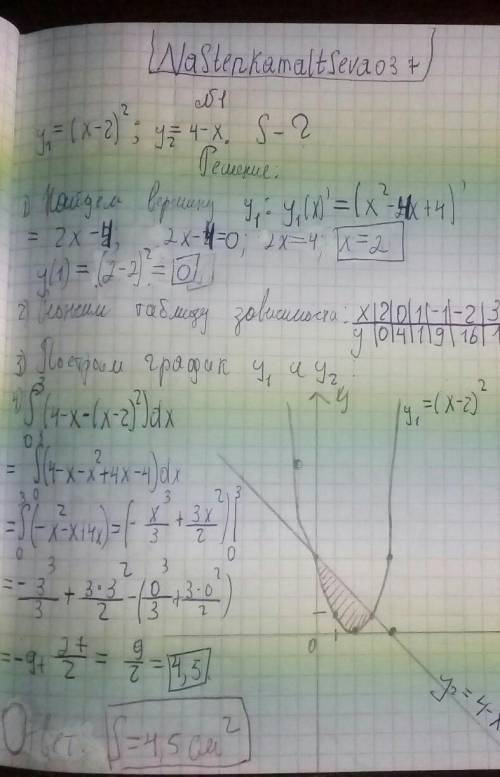 NaStenkamaltSeva037
№1
y₁=(x-2)²; y₂=4-x. S-?
Решение:
1) Найдем вершину y₁: y₁(x)'=(x²-4x+4)'
=2x-4, 2x-4=0; 2x=4; x=2
y(1)=(2-2)²=0
2) таблицу зависимости: x|2|0|1|-1|-2|3
y|0|4|1|9|16|1
3) Построим график y₁ и y₂:
4) ∫₀³(4-x-(x-2)²)dx
=∫₀³(4-x-x²+4x-4)dx
=∫₀³(-x²-x+4x)=(-x³/3+3x²/2)|₀³
=-3³/3+3·3²/2-(0³/3+3·0²/2)
=-9+27/2=9/2=4,5
Ответ: S=4,5 см²
y
y₁=(x-2)²
0 1
y₂=4-x